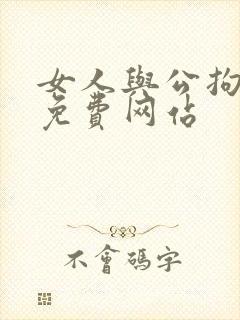 女人與公拘
免費网佔
不會碼字